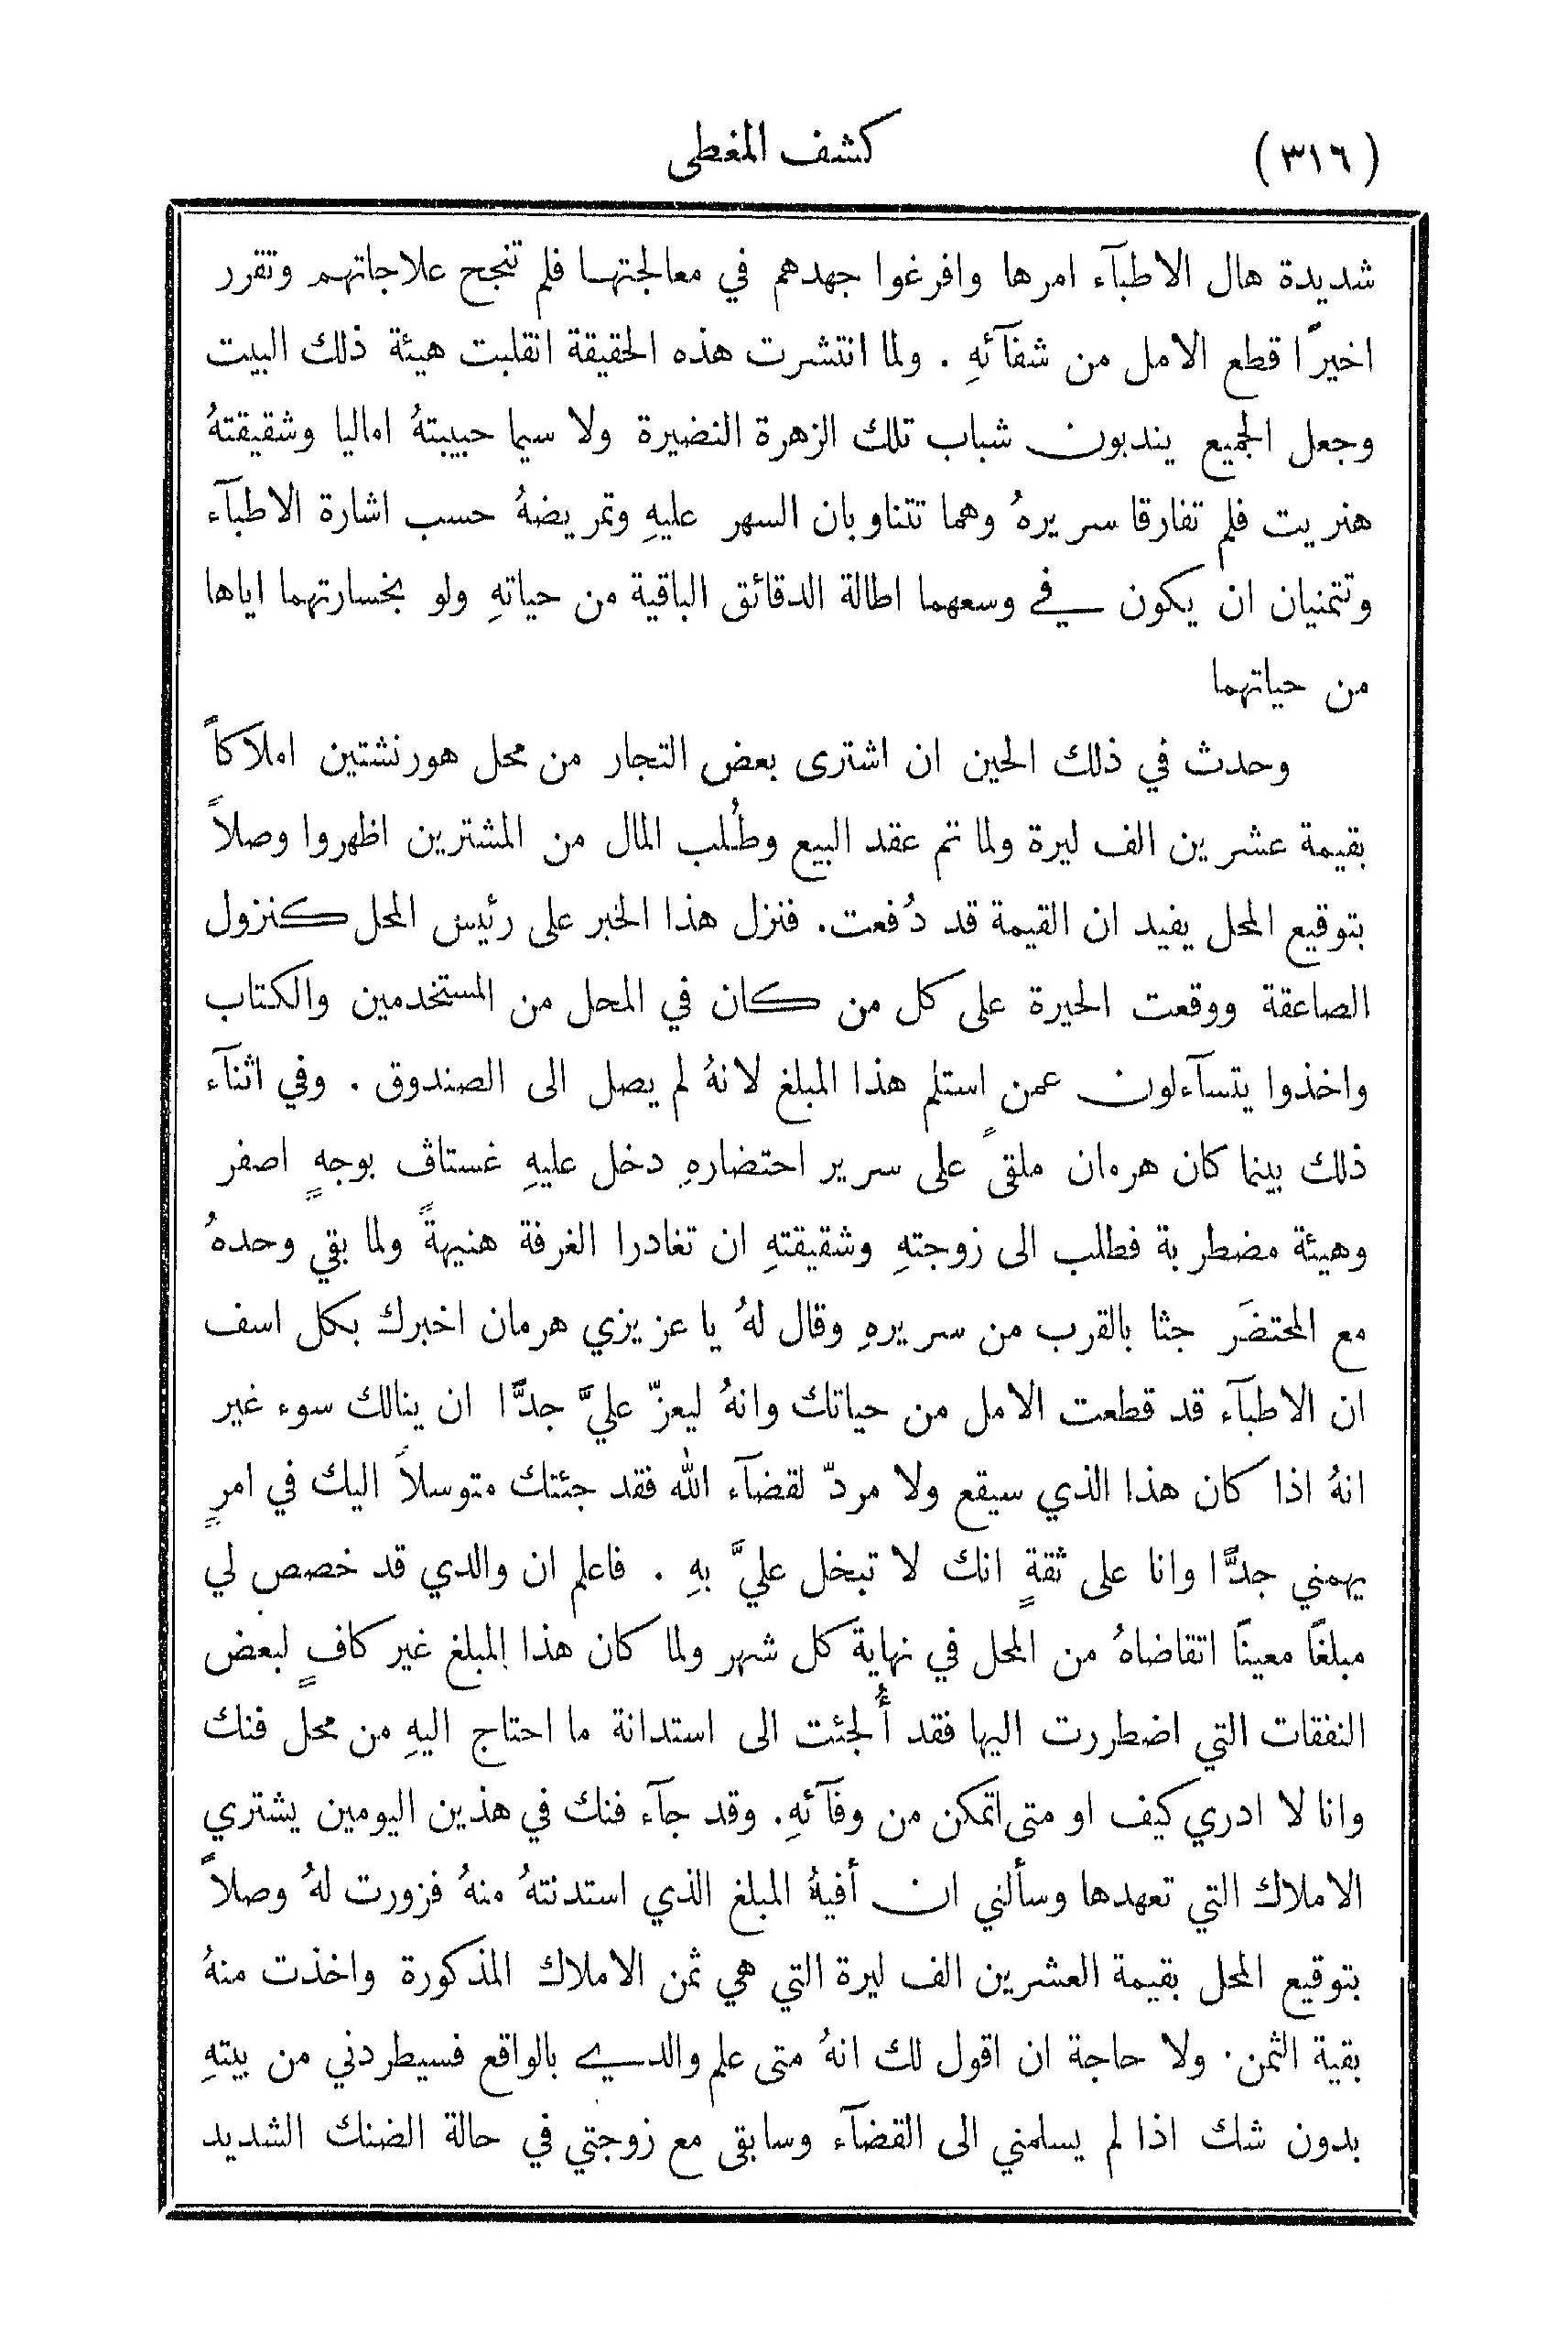 (٣١٦) كشف المغطى
شديدة هال الاطبآء امرها وافرغوا جهدهم في معالجتها فلم تنجح علاجاتهم وتقرر
اخيرًا قطع الامل من شفآئهِ . ولما انتشرت هذه الحقيقة انقلبت هيئة ذلك البيت
وجعل الجميع يندبون شباب تلك الزهرة النضيرة ولا سيما حبيبتهُ اماليا وشقيقتهُ
هنريت فلم تفارقا سريرهُ وهما تتناوبان السهر عليهِ وتمريضهُ حسب اشارة الاطبآء
وتتمنيان ان يكون في وسعهما اطالة الدقائق الباقية من حياتهِ ولو بخسارتهما اياها
من حياتهما
وحدث في ذلك الحين ان اشترى بعض التجار من محل هورنشتين املاكاً
بقيمة عشرين الف ليرة ولما تم عقد البيع وطُلب المال من المشترين اظهروا وصلاً
بتوقيع المحل يفيد ان القيمة قد دُفعت. فنزل هذا الخبر على رئيس المحل كنزول
الصاعقة ووقعت الحيرة على كل من كان في المحل من المستخدمين والكتاب
واخذوا يتسآءلون عمن استلم هذا المبلغ لانهُ لم يصل الى الصندوق . وفي اثنآء
ذلك بينما كان هرمان ملقىً على سرير احتضارهِ دخل عليهِ غستاف بوجهٍ اصفر
وهيئة مضطربة فطلب الى زوجتهِ وشقيقتهِ ان تغادرا الغرفة هنيهةً ولما بقي وحدهُ
مع المحتضَر جثا بالقرب من سريرهِ وقال لهُ يا عزيزي هرمان اخبرك بكل اسف
ان الاطبآء قد قطعت الامل من حياتك وانهُ ليعزّ عليَّ جدًّا ان ينالك سوء غير
انهُ اذا كان هذا الذي سيقع ولا مردّ لقضآء الله فقد جئتك متوسلاً اليك في امرٍ
يهمني جدًّا وانا على ثقةٍ انك لا تبخل عليَّ بهِ . فاعلم ان والدي قد خصص لي
مبلغًا معينًا اتقاضاهُ من المحل في نهاية كل شهر ولما كان هذا المبلغ غير كافٍ لبعض
النفقات التي اضطررت اليها فقد أُلجئت الى استدانة ما احتاج اليهِ من محل فنك
وانا لا ادري كيف او متى اتمكن من وفآئهِ. وقد جآء فنك في هذين اليومين يشتري
الاملاك التي تعهدها وسألني ان أفيهُ المبلغ الذي استدنتهُ منهُ فزورت لهُ وصلاً
بتوقيع المحل بقيمة العشرين الف ليرة التي هي ثمن الاملاك المذكورة واخذت منهُ
بقية الثمن. ولا حاجة ان اقول لك انهُ متى علم والدي بالواقع فسيطردني من بيتهِ
بدون شك اذا لم يسلمني الى القضآء وسابقى مع زوجتي في حالة الضنك الشديد